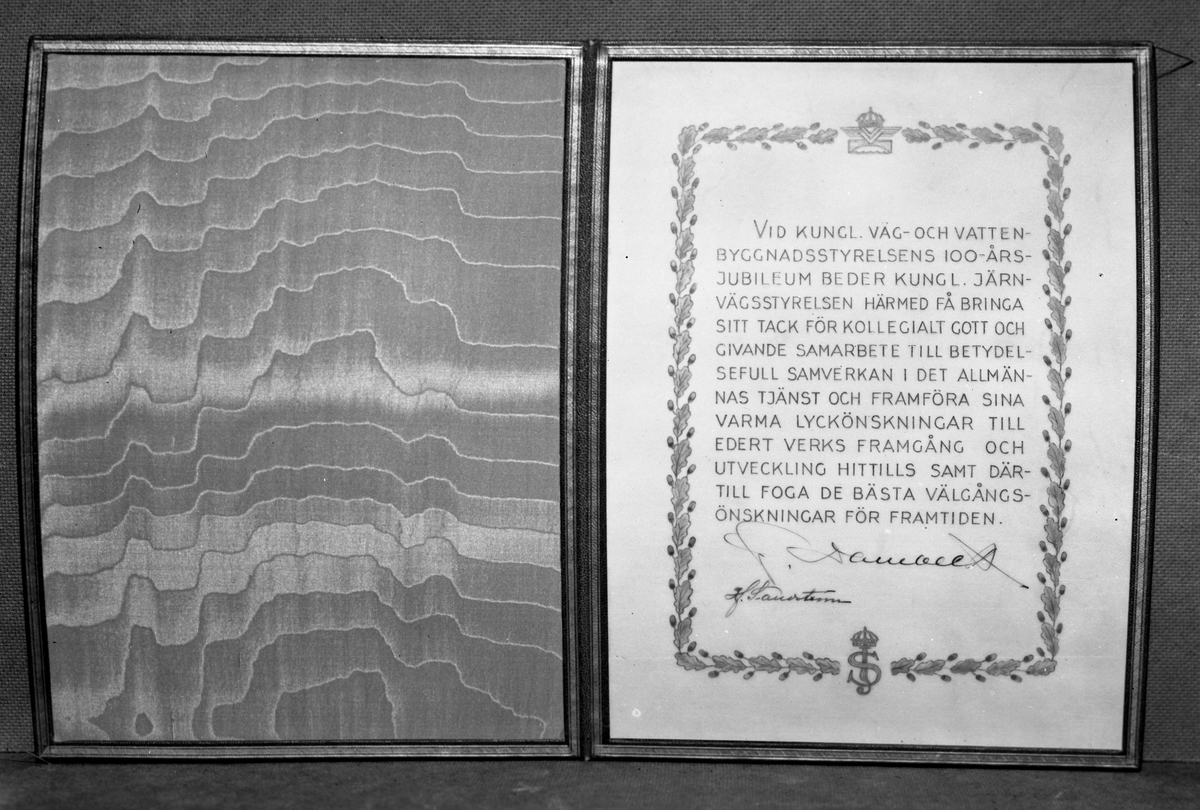 VID KUNGL. VÄG- OCH VATTEN-
BYGGNADSSTYRELSENS 100-ÅRS-
JUBILEUM BEDER KUNGL. JÄRN-
VÄGSSTYRELSEN HÄRMED FÅ BRINGA
SITT TACK FÖR KOLLEGIALT GOTT OCH
GIVANDE SAMARBETE TILL BETYDEL-
SEFULL SAMVERKAN I DET ALLMÄN-
NAS TJÄNST OCH FRAMFÖRA SINA
VARMA LYCKÖNSKNINGAR TILL
EDERT VERKS FRAMGÅNG OCH
UTVECKLING HITTILLS SAMT DÄR-
TILL FOGA DE BÄSTA VÄLGÅNGS-
ÖNSKNINGAR FÖR FRAMTIDEN.
SJ